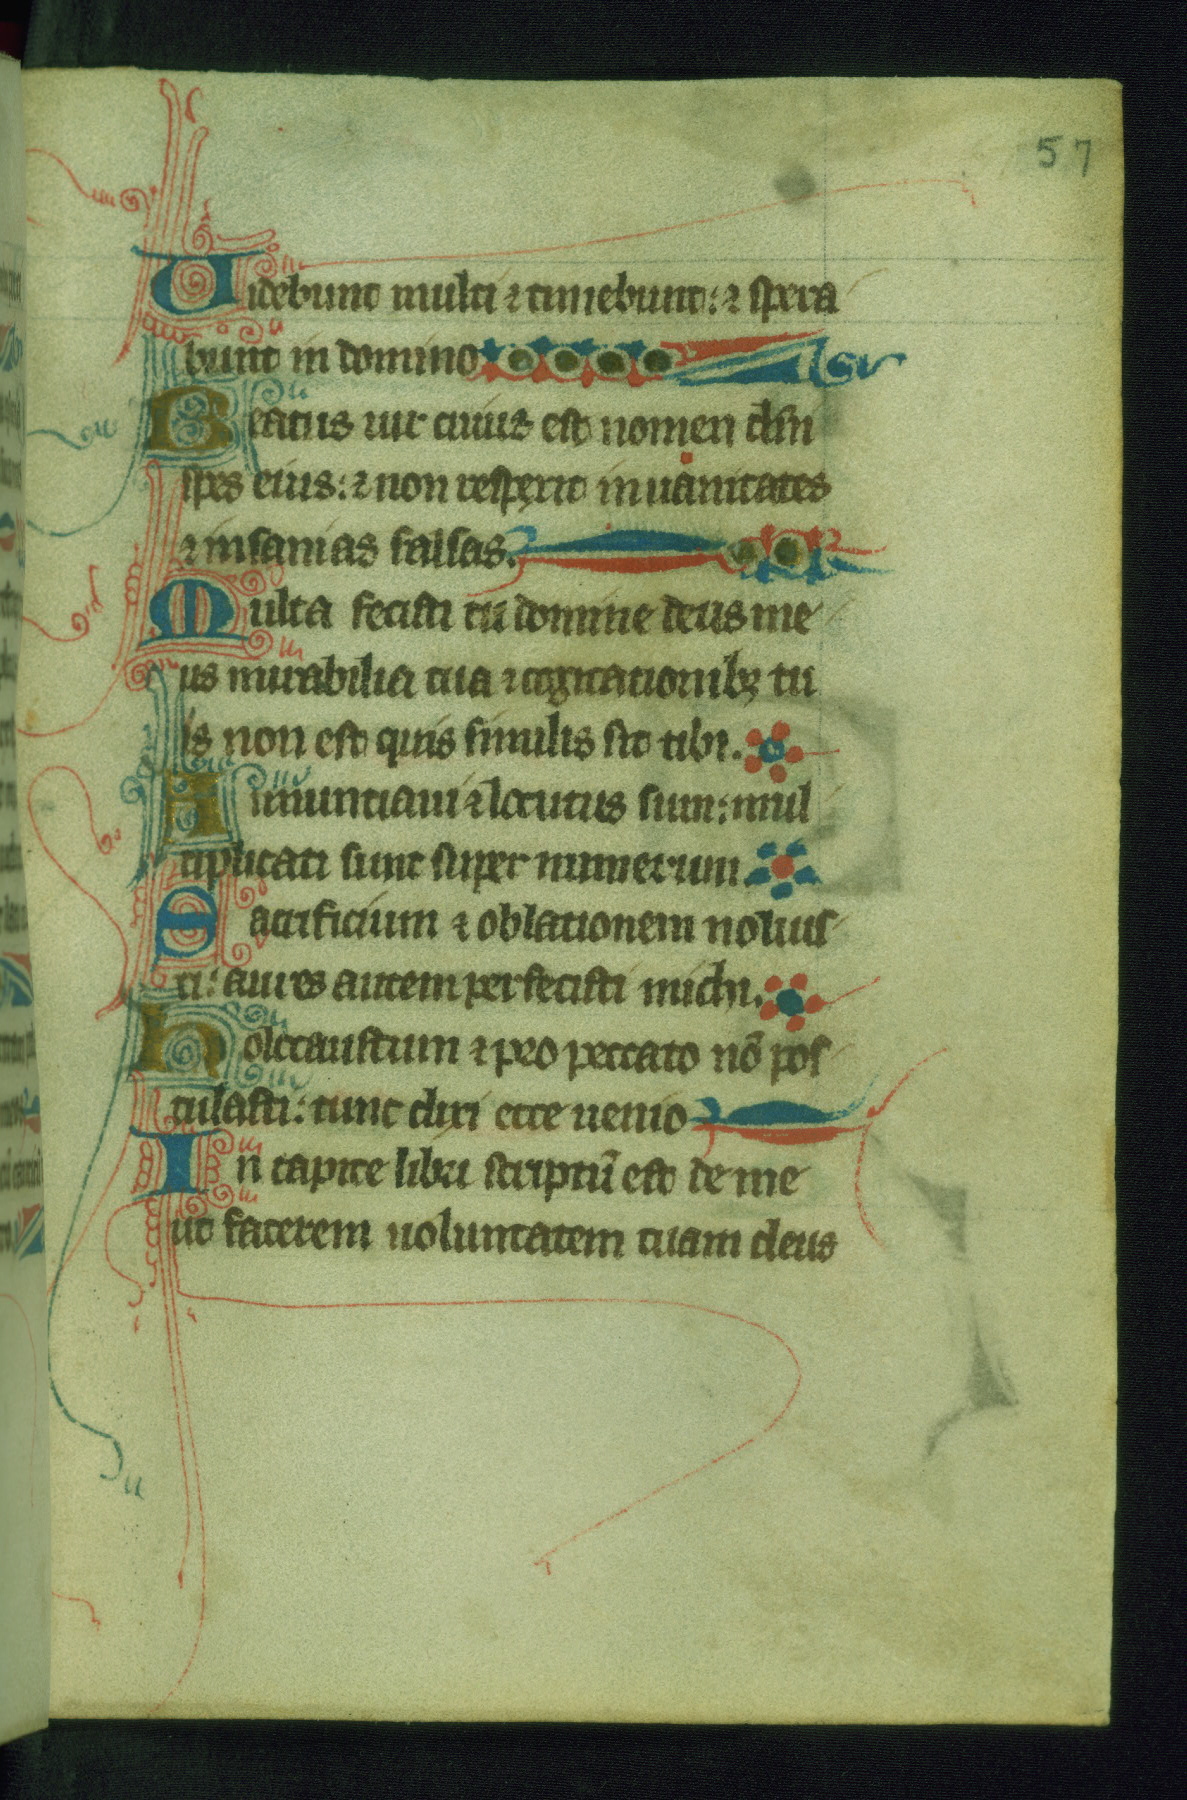 57
Videbunt multi ⁊ timebunt: ⁊ spera
bunt in domino
Beatus uir cuius est nomen dn̄i
spes eius: ⁊ non respexit in uanitates
⁊ insanias falsas.
Multa fecisti tu domine deus me
us mirabilia tua ⁊ cogitationibꝫ tu
is non est quis similis sit tibi.
Annuntiaui ⁊ locutus sum: mul
tiplicati sunt super numerum.
Sacrificium ⁊ oblationem noluis
ti: aures autem perfecisti michi.
Holocaustum ⁊ pro peccato nō pos
tulasti: tunc dixi ecce uenio
In capite libri scriptū est de me
ut facerem uoluntatem tuam deus